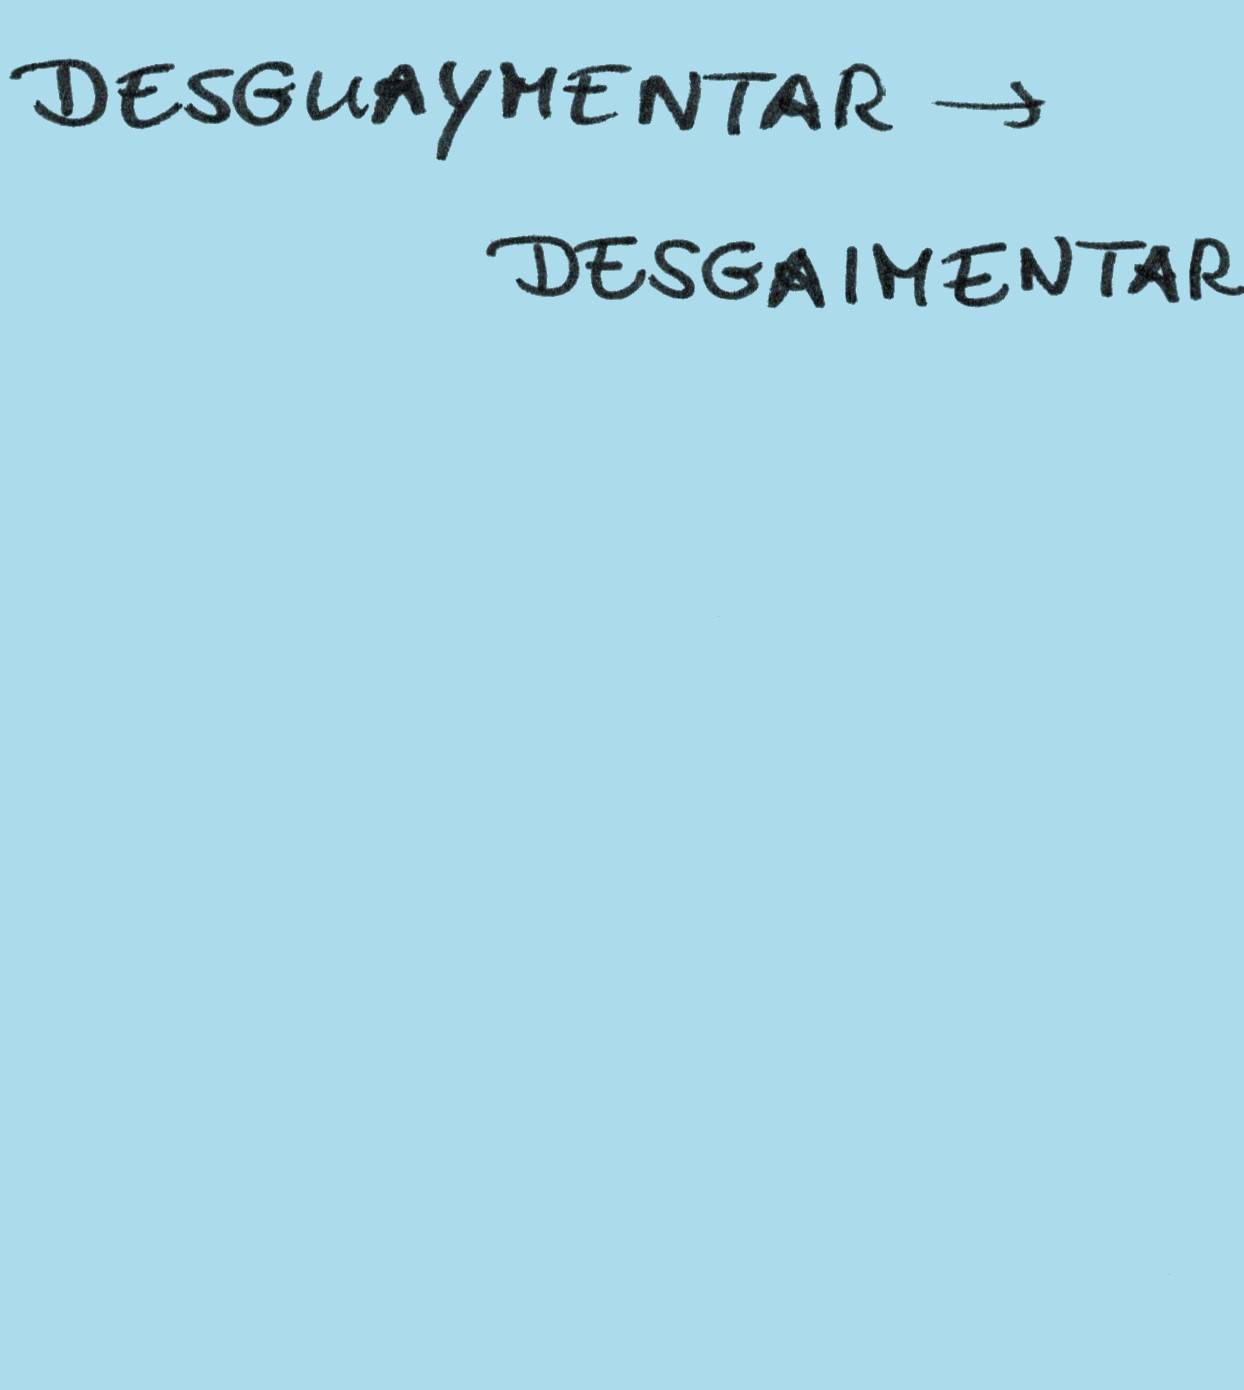 DESGUAYMENTAR →
DESGAIMENTAR